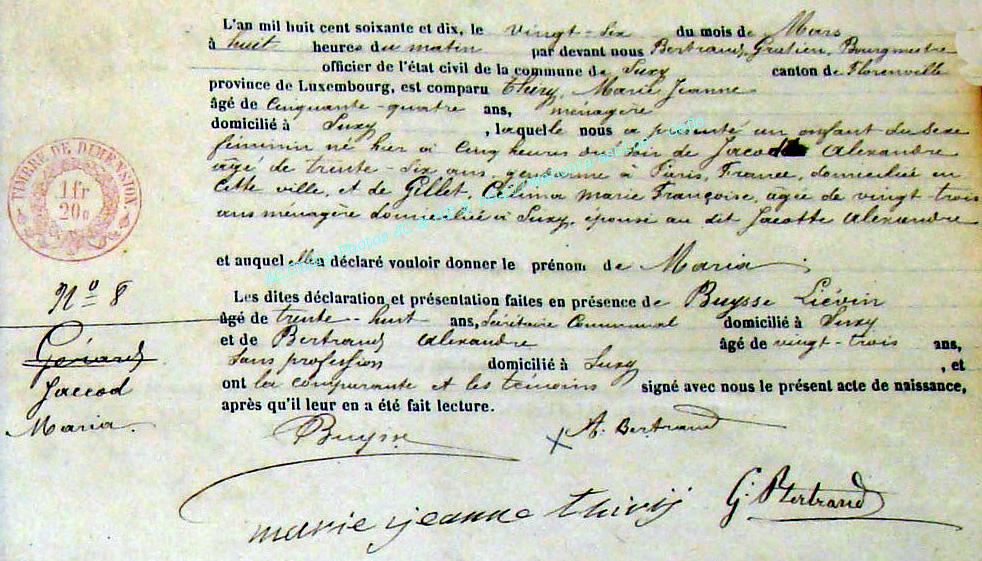 L'an mil huit cent soixante et dix, le vingt-six du mois de Mars
à huit heures du matin par devant nous Bertrand, Gratien, Bourgmestre
officier de l'état civil de la commune de Suxy canton de Florenville
province de Luxembourg, est comparu thiry, Marie Jeanne
âgé de Cinquante-quatre ans, ménagère
domicilié à Suxy, laquelle nous a présenté un enfant du sexe
féminin né hier à Cinq heures du soir de Jacod Alexandre
agé de trente-six ans, gendarme à Paris, France, domiciliée en
cette ville, et de Gillet, Célina marie Françoise, agée de vingt trois
ans ménagère domiciliée à Suxy, épouse au dit Jacotte Alexandre
et auquel elle a déclaré vouloir donner le prénom de Maria.
Les dites déclaration et présentation faites en présence de Buysse Liévin
âgé de trente-huit ans, Sécrétaire Communal domicilié à Suxy
et de Bertrand Alexandre âgé de vingt-trois ans,
Sans profession domicilié à Suxy, et
ont la comparante et les témoins signé avec nous le présent acte de naissance,
après qu'il leur en a été fait lecture.
TIMBRE DE DIMENSION
1 fr
20c
Nº 8
Gérard
Jaccod
Maria.
Buysse
A. Bertrand
marie jeanne thiry
G. Bertrand